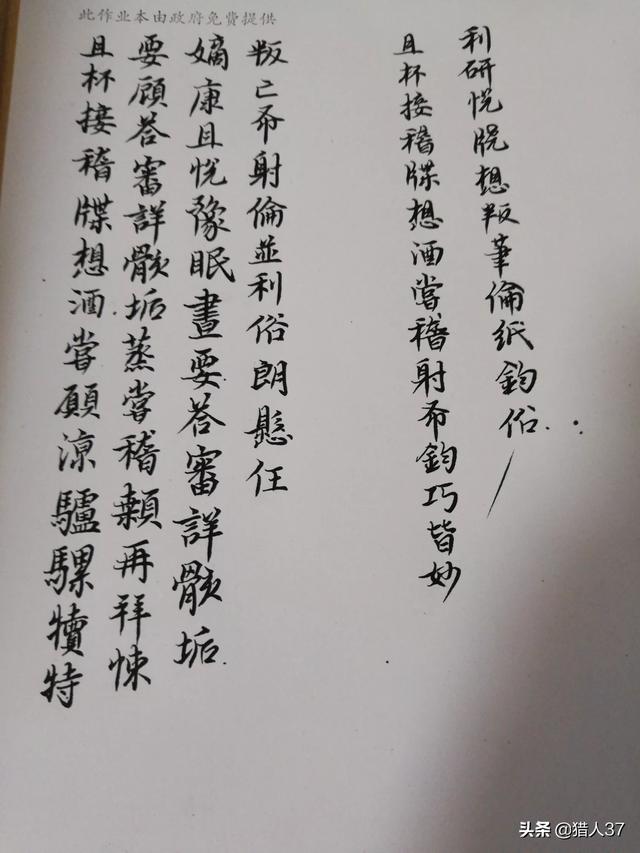 此作业本由政府免费提供
利研悦牒想叛笔倫紙鈞俗
且杯接稽牒想酒嘗稽射布鈞巧皆妙
叛亡布射倫並利俗朗懸任
嫡康且悦豫眠晝要荅審詳骸垢
要顧荅審詳骸垢蒸嘗稽顙再拜悚
且杯接稽牒想酒嘗願涼驢騾犢特
头条@猎人37